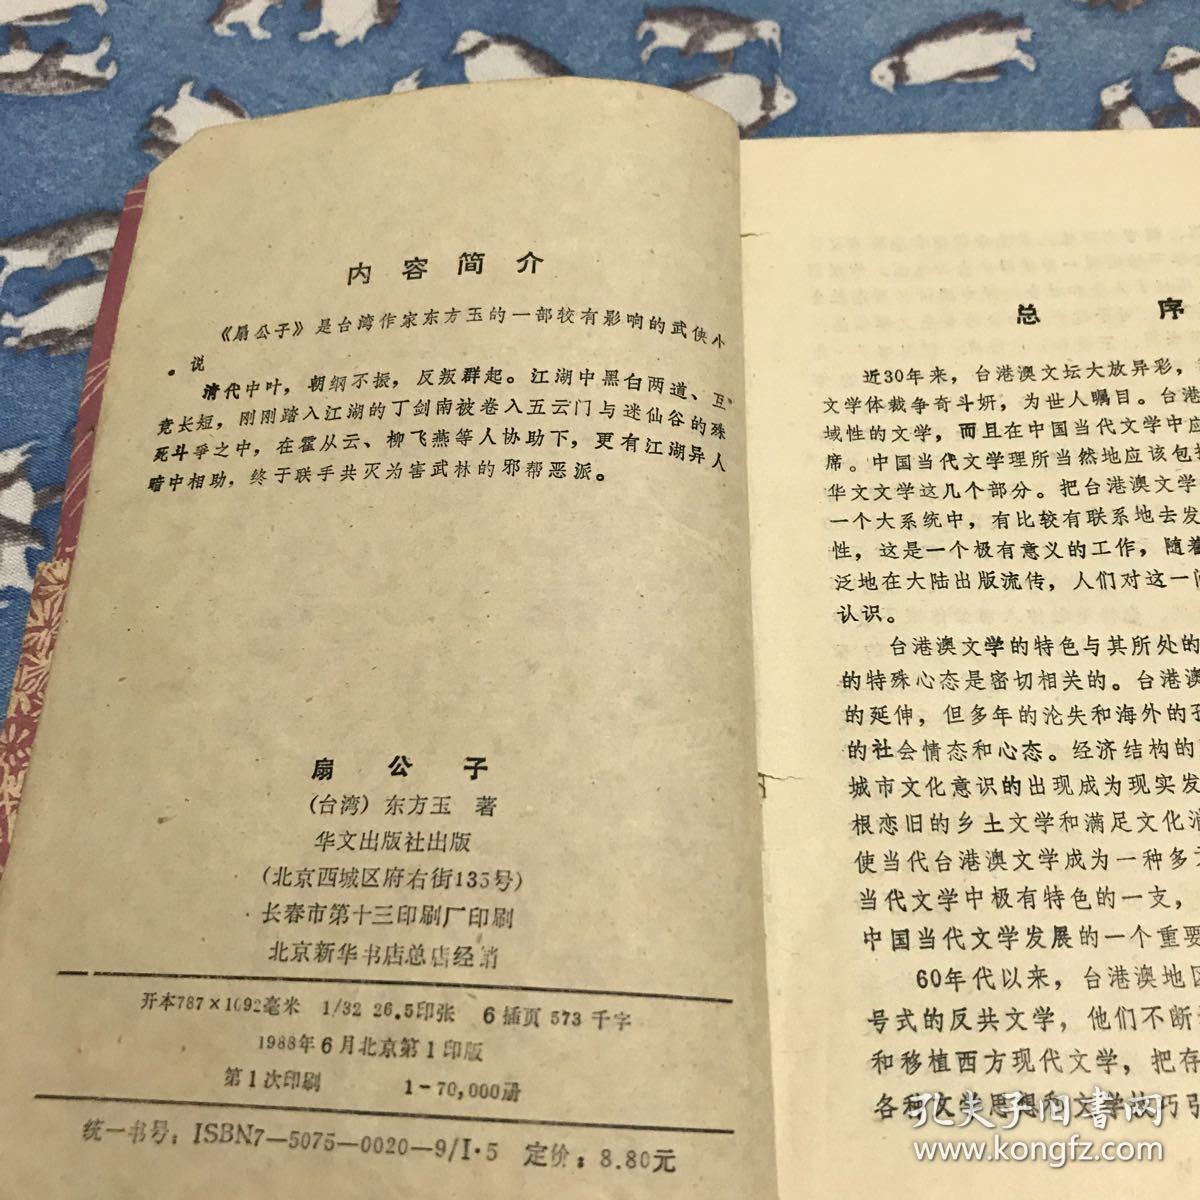 内容简介
《扇公子》是台湾作家东方玉的一部较有影响的武侠小
说。
清代中叶，朝纲不振，反叛群起。江湖中黑白两道、互
竞长短，刚刚踏入江湖的丁剑南被卷入五云门与迷仙谷的殊
死斗争之中，在霍从云、柳飞燕等人协助下，更有江湖异人
暗中相助，终于联手共灭为害武林的邪帮恶派。
扇公子
(台湾) 东方玉 著
华文出版社出版
(北京西城区府右街135号)
长春市第十三印刷厂印刷
北京新华书店总店经销
开本787×1092毫米 1/32 26.5印张 6插页 573千字
1988年6月北京第1印版
第1次印刷 1-70,000册
统一书号：ISBN7-5075-0020-9/I·5 定价：8.80元
总序
近30年来，台港澳文坛大放异彩，
文学体裁争奇斗妍，为世人嘱目。台港
域性的文学，而且在中国当代文学中应
席。中国当代文学理所当然地应该包括
华文文学这几个部分。把台港澳文学
一个大系统中，有比较有联系地去发
性，这是一个极有意义的工作，随着
泛地在大陆出版流传，人们对这一问
认识。
台港澳文学的特色与其所处的
的特殊心态是密切相关的。台港澳
的延伸，但多年的沦失和海外的孤
的社会情态和心态。经济结构的
城市文化意识的出现成为现实发
根恋旧的乡土文学和满足文化消
使当代台港澳文学成为一种多
当代文学中极有特色的一支，
中国当代文学发展的一个重要
60年代以来，台港澳地区
号式的反共文学，他们不断
和移植西方现代文学，把存
各种文学思想和文学技巧引
孔夫子旧书网
www.kongfz.com